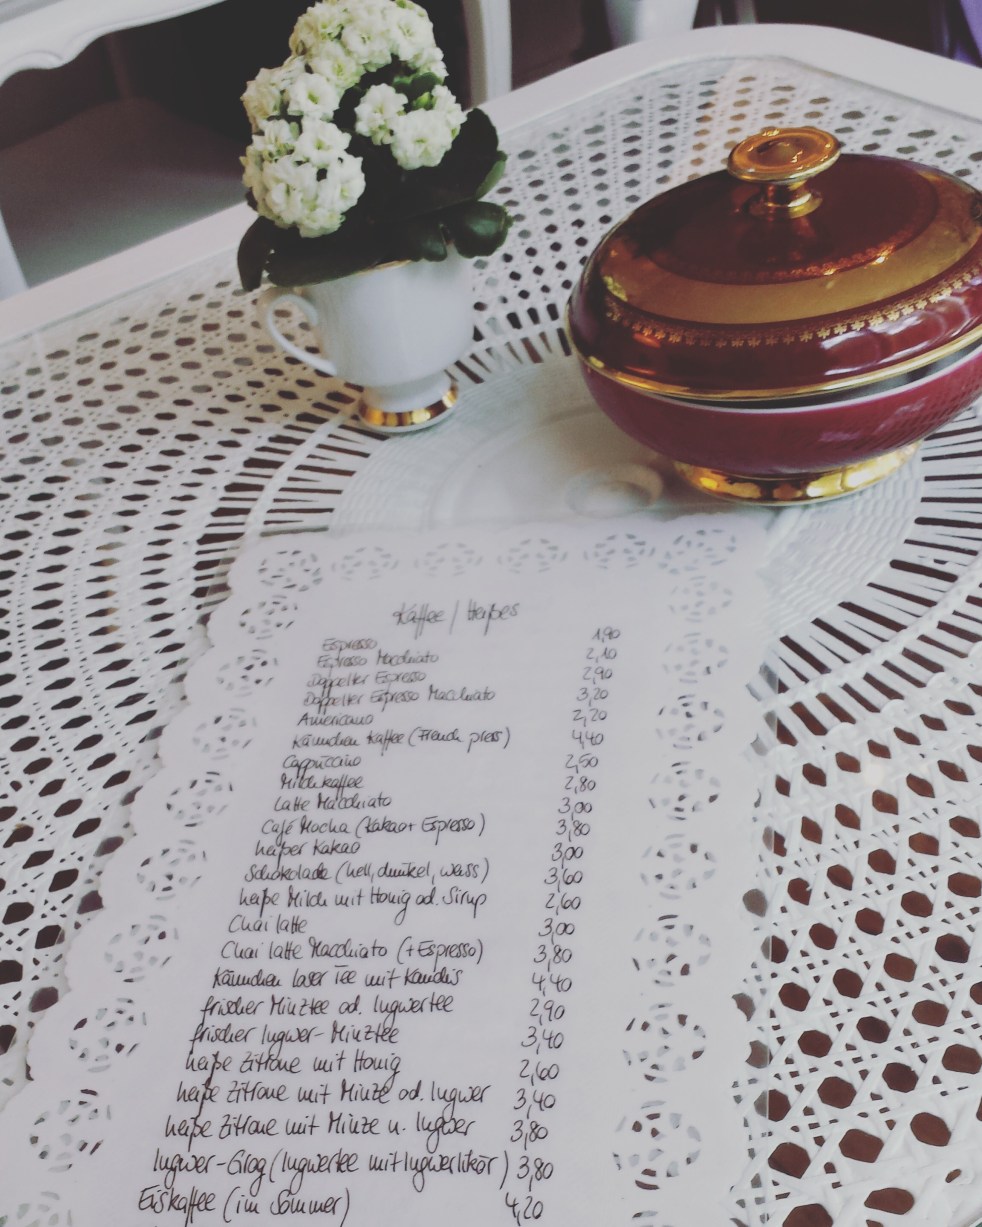 Kaffee / Heißes
Espresso 1,90
Espresso Macchiato 2,10
Doppelter Espresso 2,90
Doppelter Espresso Macchiato 3,20
Americano 2,20
Kännchen Kaffee (French press) 4,40
Cappuccino 2,50
Milchkaffee 2,80
Latte Macchiato 3,00
Café Mocha (Kakao + Espresso) 3,80
heißer Kakao 3,00
Schokolade (hell, dunkel, weiss) 3,60
heiße Milch mit Honig od. Sirup 2,60
Chai latte 3,00
Chai latte Macchiato (+ Espresso) 3,80
Kännchen loser Tee mit Kandis 4,40
frischer Minztee od. Ingwertee 2,90
frischer Ingwer-Minztee 3,40
heiße Zitrone mit Honig 2,60
heiße Zitrone mit Minze od. Ingwer 3,40
heiße Zitrone mit Minze u. Ingwer 3,80
Ingwer-Grog (Ingwertee mit Ingwerlikör) 3,80
Eiskaffee (im Sommer) 4,20